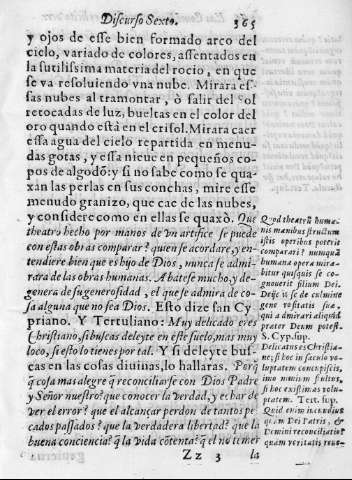 Discurso Sexto. 365
y ojos de esse bien formado arco del
cielo, variado de colores, assentados en
la sutilissima materia del rocio, en que
se va resoluiendo vna nube. Mirara es-
sas nubes al tramontar, ò salir del Sol
retocadas de luz, bueltas en el color del
oro quando està en el crisol. Mirara caer
essa agua del cielo repartida en menu-
das gotas, y essa nieue en pequeños co-
pos de algodõ; y si no sabe como se qua-
xan las perlas en sus conchas, mire esse
menudo granizo, que cae de las nubes,
y considere como en ellas se quaxò. Que
theatro hecho por manos de vn artifice se puede
con estas obras comparar? quien se acordare, y en-
tendiere bien que es hijo de Dios, nunca se admi-
rara de las obras humanas. Abatese mucho, y de-
genera de su generosidad, el que se admira de co-
sa alguna que no sea Dios. Esto dize san Cy-
priano. Y Tertuliano: Muy delicado eres
Christiano, si buscas deleyte en este suelo, mas muy
loco, si esto lo tienes por tal. Y si deleyte bus-
cas en las cosas diuinas, lo hallaras. Porq̃
q̃ cosa mas alegre q̃ reconciliarse con Dios Padre
y Señor nuestro? que conocer la verdad, y echar de
ver el error? que el alcançar perdon de tantos pe-
cados passados? que la verdadera libertad? que la
buena conciencia? q̃ la vida cõtenta? q̃ el no temer
Zz 3 la
Quod theatrũ huma-
nis manibus structum
istis operibus poterit
comparari? nunquã
humana opera mira-
bitur quisquis se co-
gnouerit filium Dei.
Deijcit se de culmine
generositatis suæ,
qui admirari aliquid
præter Deum potest.
S. Cyp. sup.
Delicatus es Christia-
ne, si hoc in sæculo vo-
luptatem concupiscis,
imo nimium stultus,
si hoc existimas volu-
ptatem. Tert. sup.
Quid enim iucundius
quam Dei Patris, &
Domini reconciliatio?
quam veritatis reue-